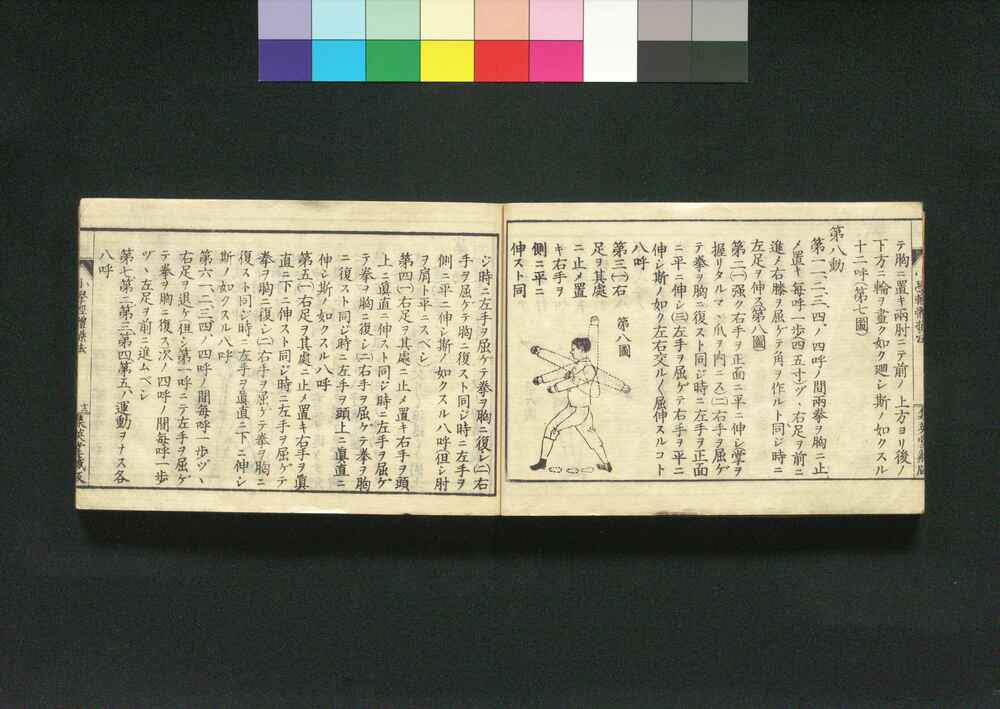 テ胸ニ置キ兩肘ニテ前ノ上方ヨリ後ノ
下方ニ輪ヲ畫ク如ク廻シ斯ノ如クスル
十二呼(第七圖)
第八動
第一一、二、三、四、ノ四呼ノ間兩拳ヲ胸ニ止
メ置キ每呼一歩(四五寸)ヅヽ右足ヲ前ニ
進メ右膝ヲ屈ゲテ角ヲ作ルト同ジ時ニ
左足ヲ伸ス(第八圖)
第二(一)强ク右手ヲ正面ニ平ニ伸シ(掌ヲ
握リタルマヽ爪ヲ内ニス)(二)右手ヲ屈ゲ
テ拳ヲ胸ニ復スト同ジ時ニ左手ヲ正面
ニ平ニ伸シ(三)左手ヲ屈ゲテ右手ヲ平ニ
伸シ斯ノ如ク左右交ル〱屈伸スルコト
八呼
第三(一)右
足ヲ其處
ニ止メ置
キ右手ヲ
側ニ平ニ
伸スト同
第八圖
ジ時ニ左手ヲ屈ゲテ拳ヲ胸ニ復シ(二)右
手ヲ屈ゲテ胸ニ復スト同ジ時ニ左手ヲ
側ニ平ニ伸シ斯ノ如クスル八呼但シ肘
ヲ肩ト平ニスベシ
第四(一)右足ヲ其處ニ止メ置キ右手ヲ頭
上ニ眞直ニ伸スト同ジ時ニ左手ヲ屈ゲ
テ拳ヲ胸ニ復シ(二)右手ヲ屈ゲテ拳ヲ胸
ニ復スト同ジ時ニ左手ヲ頭上ニ眞直ニ
伸シ斯ノ如クスル八呼
第五(一)右足ヲ其處ニ止メ置キ右手ヲ眞
直ニ下ニ伸スト同ジ時ニ左手ヲ屈ゲテ
拳ヲ胸ニ復シ(二)右手ヲ屈ゲテ拳ヲ胸ニ
復スト同ジ時ニ左手ヲ眞直ニ下ニ伸シ
斯ノ如クスル八呼
第六一、二、三、四、ノ四呼ノ間每呼一歩ヅヽ
右足ヲ退ケ但シ第一呼ニテ左手ヲ屈ゲ
テ拳ヲ胸ニ復ス次ノ四呼ノ間每呼一歩
ヅヽ左足ヲ前ニ進ムベシ
第七第二第三第四第五ノ運動ヲナス各
八呼